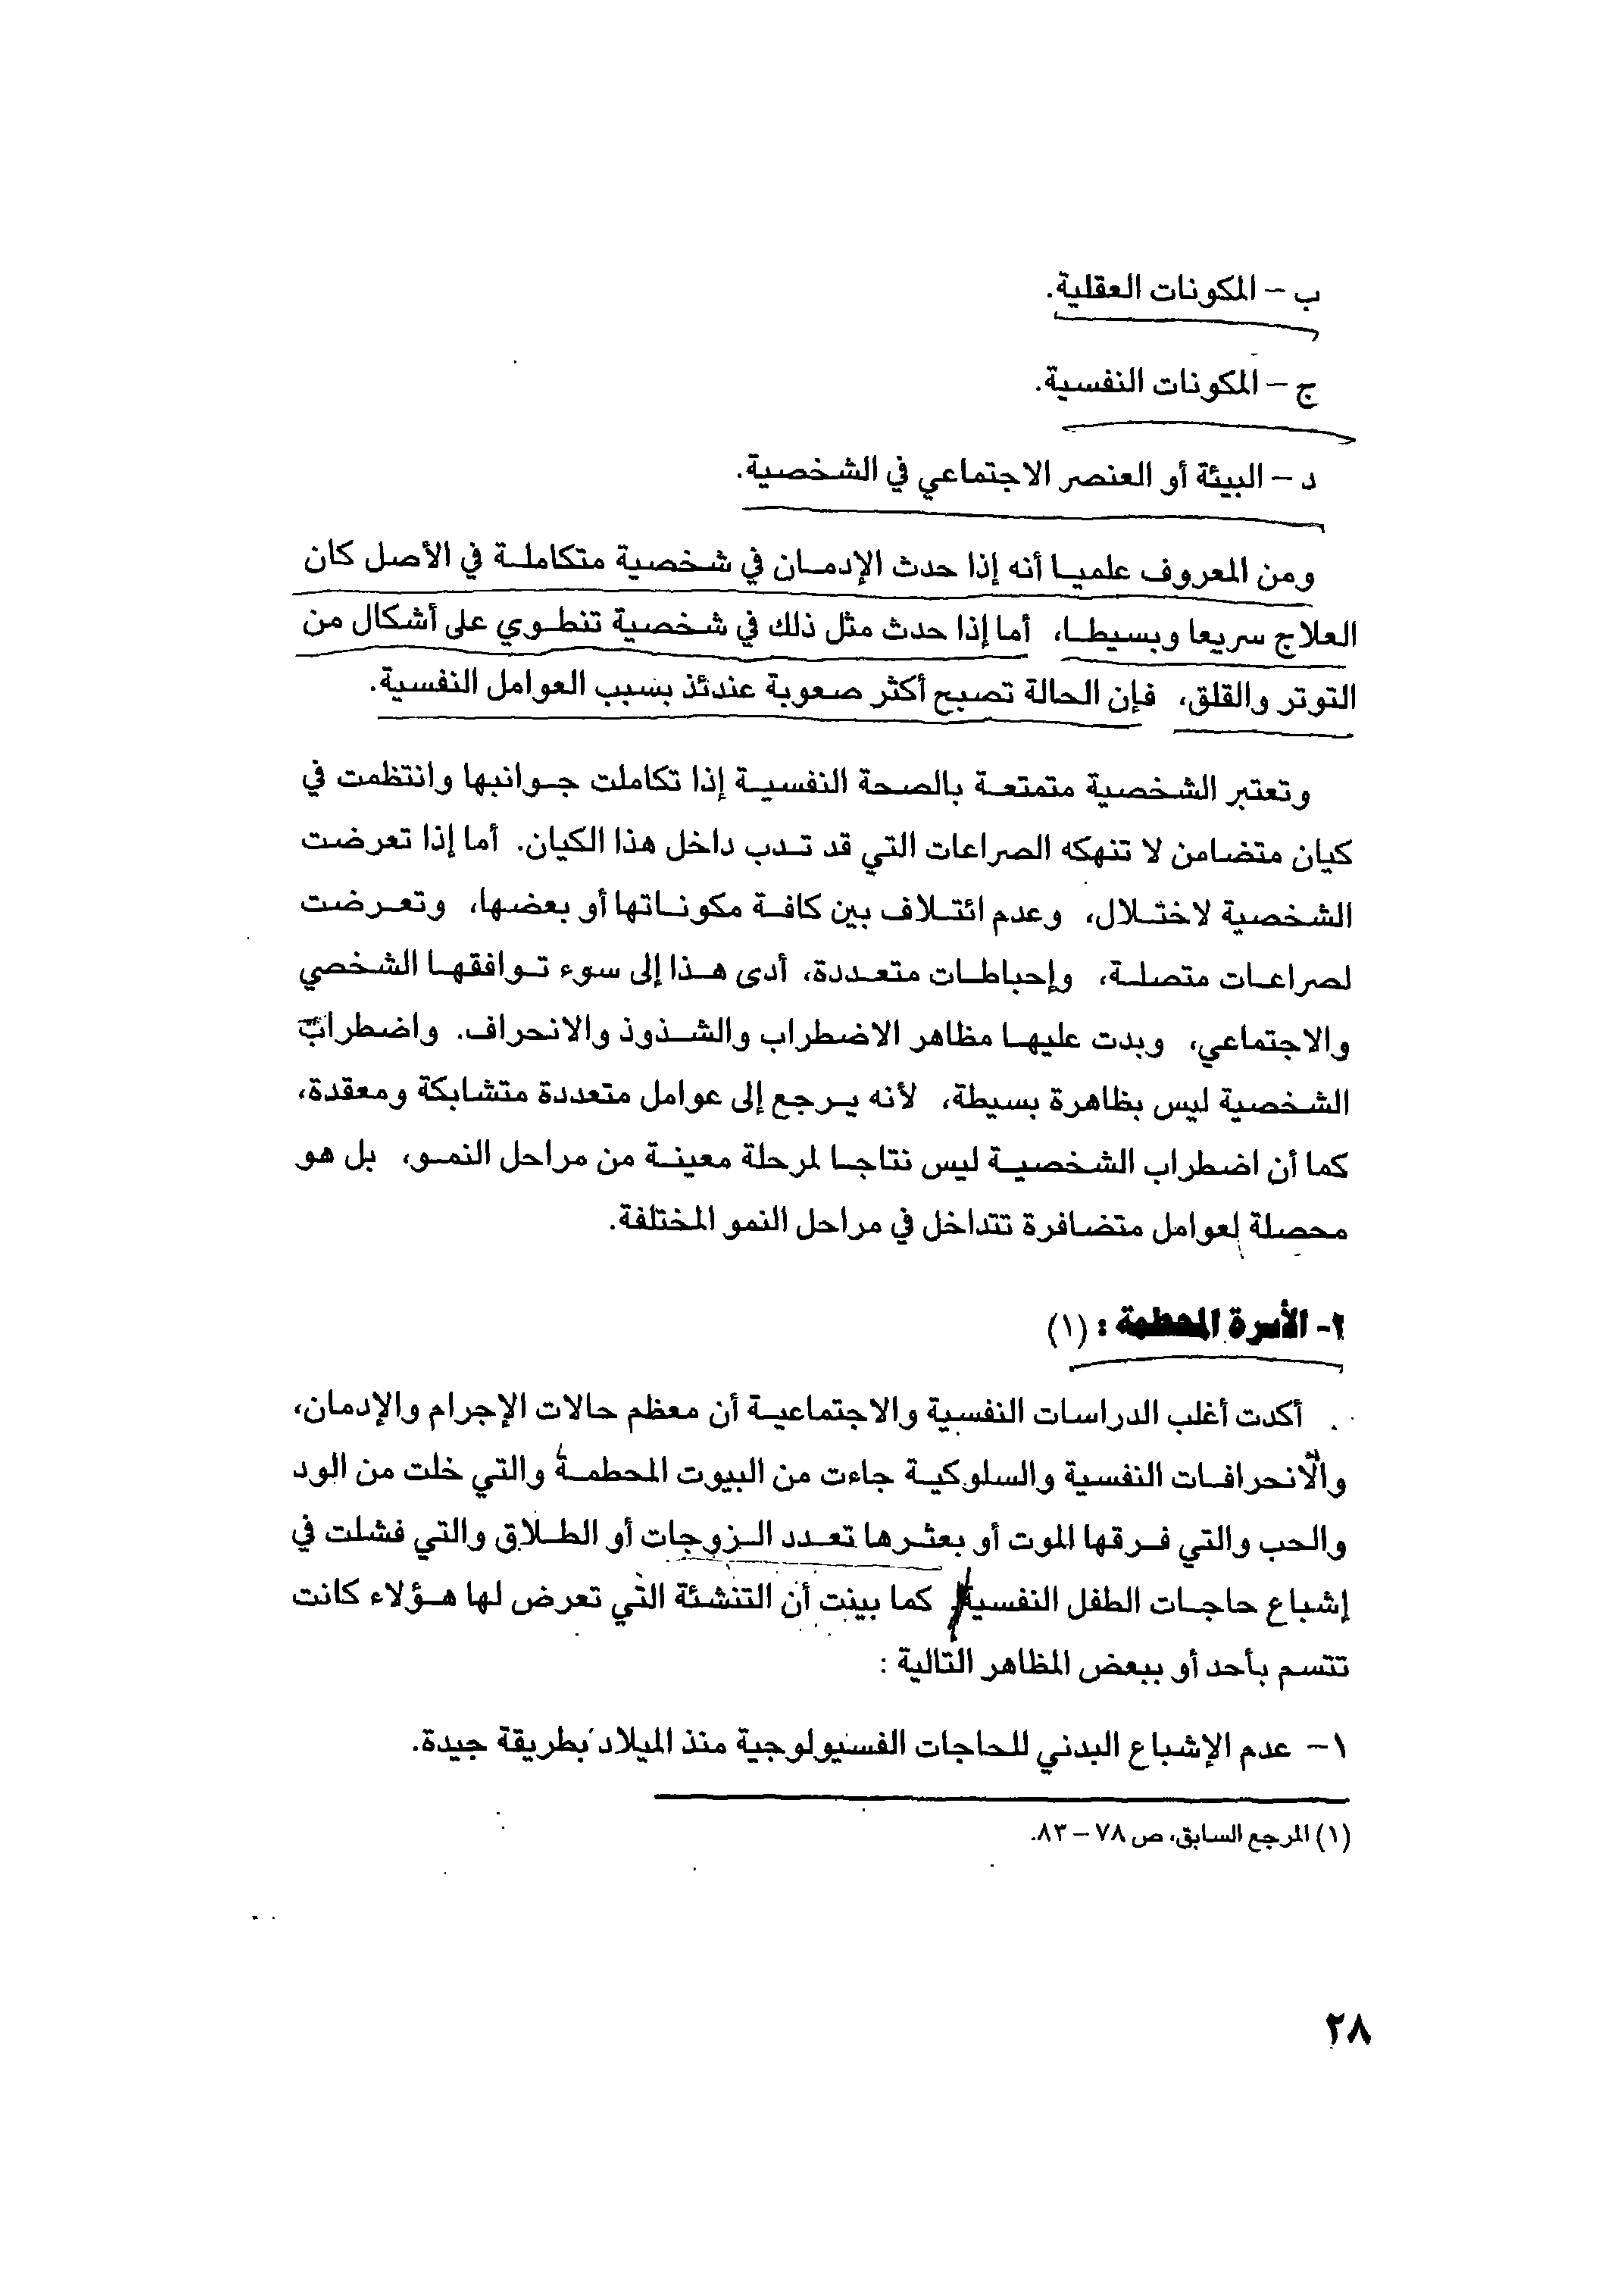 ب – المكونات العقلية.
ج – المكونات النفسية.
د – البيئة أو العنصر الاجتماعي في الشخصية.
ومن المعروف علميا أنه إذا حدث الإدمان في شخصية متكاملة في الأصل كان
العلاج سريعا وبسيطا، أما إذا حدث مثل ذلك في شخصية تنطوي على أشكال من
التوتر والقلق، فإن الحالة تصبح أكثر صعوبة عندئذ بسبب العوامل النفسية.
وتعتبر الشخصية متمتعة بالصحة النفسية إذا تكاملت جوانبها وانتظمت في
كيان متضامن لا تنهكه الصراعات التي قد تدب داخل هذا الكيان. أما إذا تعرضت
الشخصية لاختلال، وعدم ائتلاف بين كافة مكوناتها أو بعضها، وتعرضت
لصراعات متصلة، وإحباطات متعددة، أدى هذا إلى سوء توافقها الشخصي
والاجتماعي، وبدت عليها مظاهر الاضطراب والشذوذ والانحراف. واضطراب
الشخصية ليس بظاهرة بسيطة، لأنه يرجع إلى عوامل متعددة متشابكة ومعقدة،
كما أن اضطراب الشخصية ليس نتاجا لمرحلة معينة من مراحل النمو، بل هو
محصلة لعوامل متضافرة تتداخل في مراحل النمو المختلفة.
٢- الأسرة المحطمة : (١)
أكدت أغلب الدراسات النفسية والاجتماعية أن معظم حالات الإجرام والإدمان،
والانحرافات النفسية والسلوكية جاءت من البيوت المحطمة والتي خلت من الود
والحب والتي فرقها الموت أو بعثرها تعدد الزوجات أو الطلاق والتي فشلت في
إشباع حاجات الطفل النفسية. كما بينت أن التنشئة التي تعرض لها هؤلاء كانت
تتسم بأحد أو ببعض المظاهر التالية :
١– عدم الإشباع البدني للحاجات الفسيولوجية منذ الميلاد بطريقة جيدة.
(١) المرجع السابق، ص ٧٨ – ٨٣.
٢٨